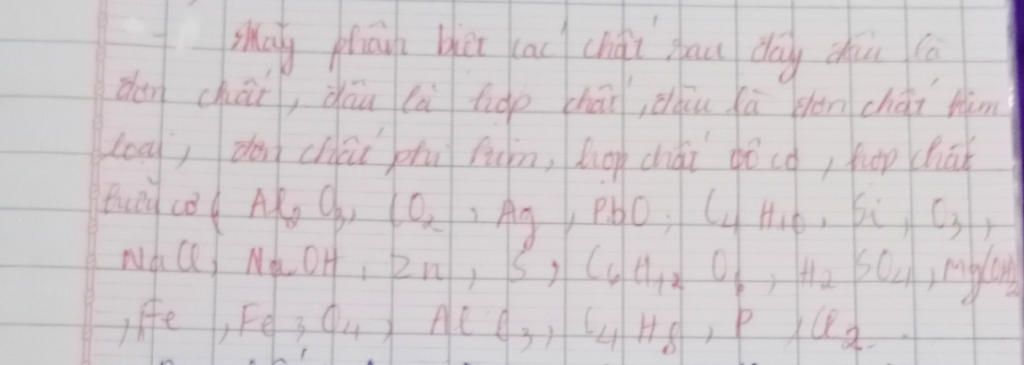 Hãy phân biệt các chất sau đây đâu là
đơn chất, đâu là hợp chất, đâu là đơn chất kim
loại, đơn chất phi kim, hợp chất vô cơ, hợp chất
hữu cơ ( Al2O3, CO2, Ag, PbO, C4H10, Si, O3,
NaCl, NaOH, Zn, S, C6H12O6, H2SO4, Mg(OH)2
, Fe, Fe3O4, AlCl3, C4H8, P, Cl2.